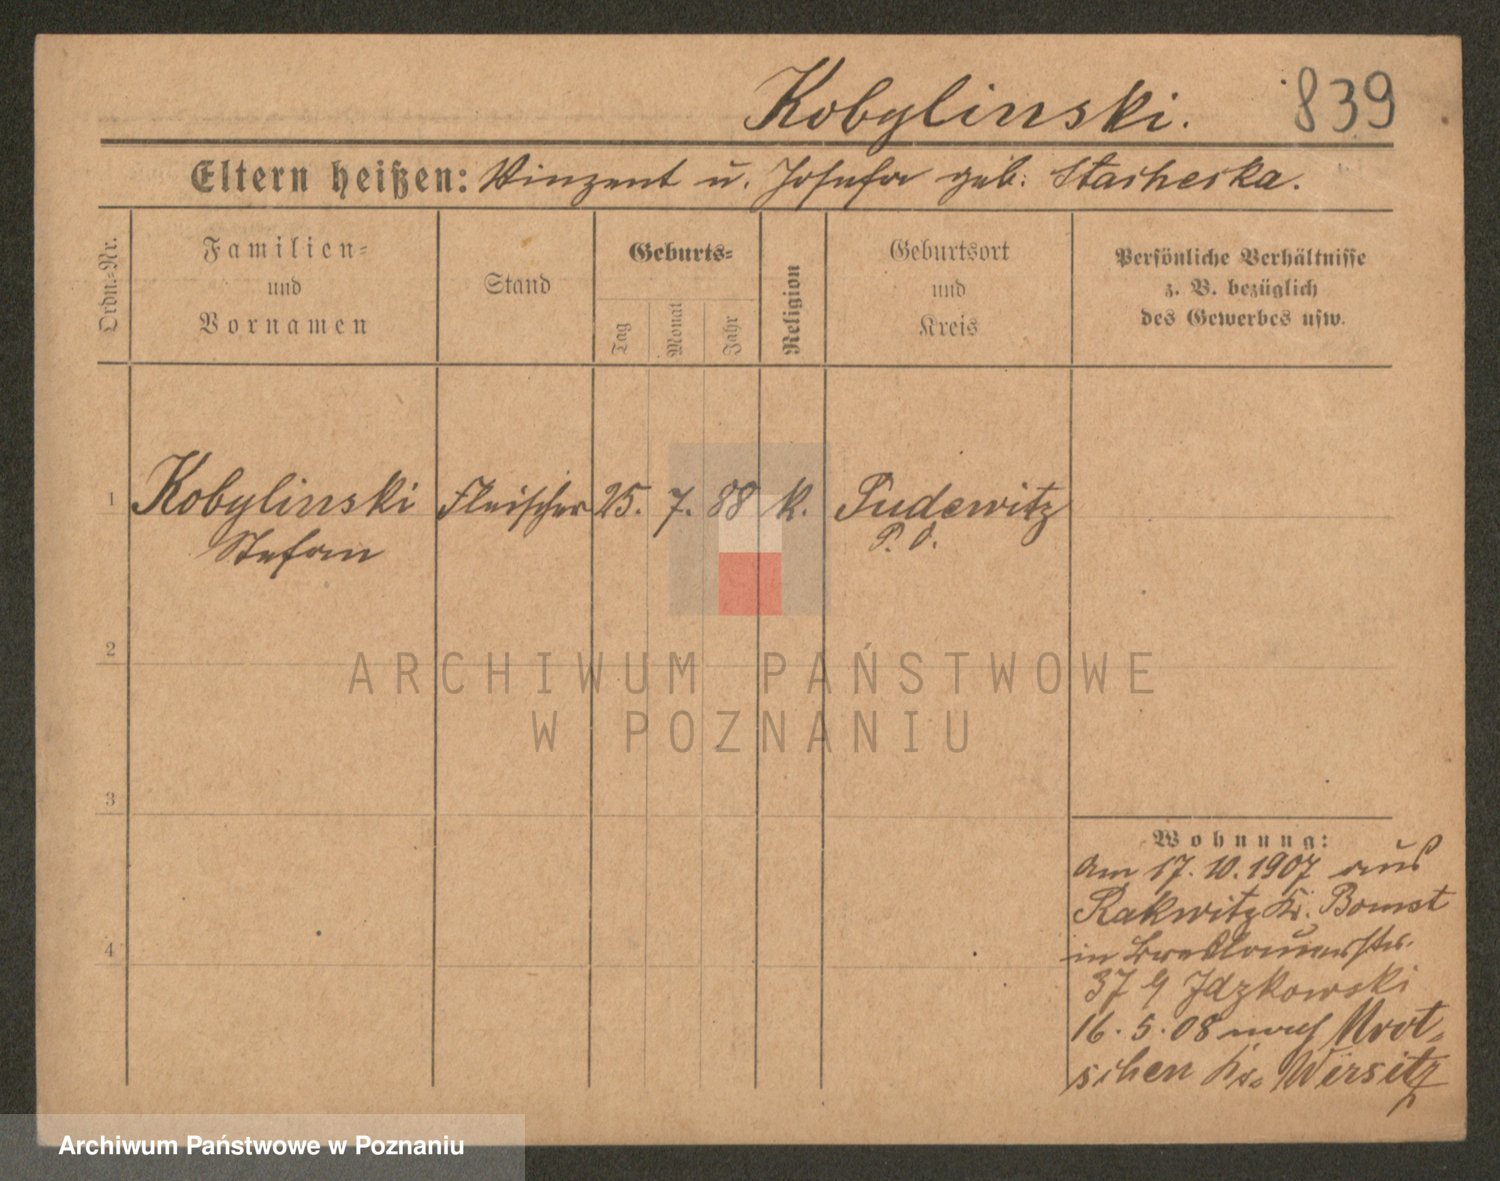 Kobylinski. 839
Eltern heißen: Winzent u. Josefa geb. Stacherska.
Ordn.-Nr.
Familien-
und
Vornamen
Stand
Geburts-
Tag
Monat
Jahr
Religion
Geburtsort
und
Kreis
Persönliche Verhältnisse
z. B. bezüglich
des Gewerbes usw.
1 Kobylinski Fleischer 25. 7. 88 k. Pudewitz
Stefan P. O.
2
3
4
ARCHIWUM PAŃSTWOWE
W POZNANIU
Wohnung:
Am 17. 10. 1907 aus
Rakwitz Kr. Bomst
in Breslauerstr.
37 b/ Idzkowski
16. 5. 08 nach Mrot-
schen Kr. Wirsitz
Archiwum Państwowe w Poznaniu